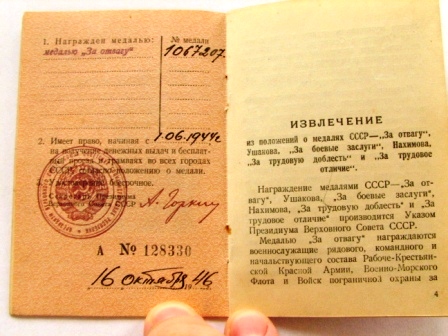 1. Награжден медалью:
№ медали
медалью „За отвагу"
1067207.
2. Имеет право, начиная с
1.06.1944г.
на получение денежных выдач и бесплат-
ный проезд в трамваях во всех городах
СССР согласно положению о медали.
3. Удостоверение бессрочное.
Секретарь Президиума
А. Горкин
А № 128330
16 октября 1946
ИЗВЛЕЧЕНИЕ
из положений о медалях СССР—„За отвагу",
Ушакова, „За боевые заслуги", Нахимова,
„За трудовую доблесть" и „За трудовое
отличие".
Награждение медалями СССР—„За от-
вагу", Ушакова, „За боевые заслуги",
Нахимова, „За трудовую доблесть" и „За
трудовое отличие" производится Указом
Президиума Верховного Совета СССР.
Медалью „За отвагу" награждаются
военнослужащие рядового, командного и
начальствующего состава Рабоче-Крестьян-
ской Красной Армии, Военно-Морского
Флота и Войск пограничной охраны за
4